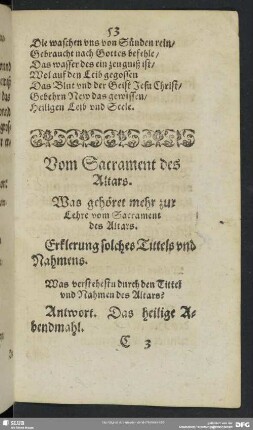 53
Die waschen vns von Sünden rein/
Gebraucht nach Gottes befehle/
Das wasser des ein zeugniß ist/
Wol auf den Leib gegossen
Das Blut vnd der Geist Jesu Christ/
Gebehrn New das gewissen/
Heiligen Leib vnd Seele.
Vom Sacrament des
Altars.
Was gehöret mehr zur
Lehre vom Sacrament
des Altars.
Erklerung solches Tittels vnd
Nahmens.
Was verstehestu durch den Tittel
vnd Nahmen des Altars?
Antwort. Das heilige A-
bendmahl.
C 3
SLUB
DFG